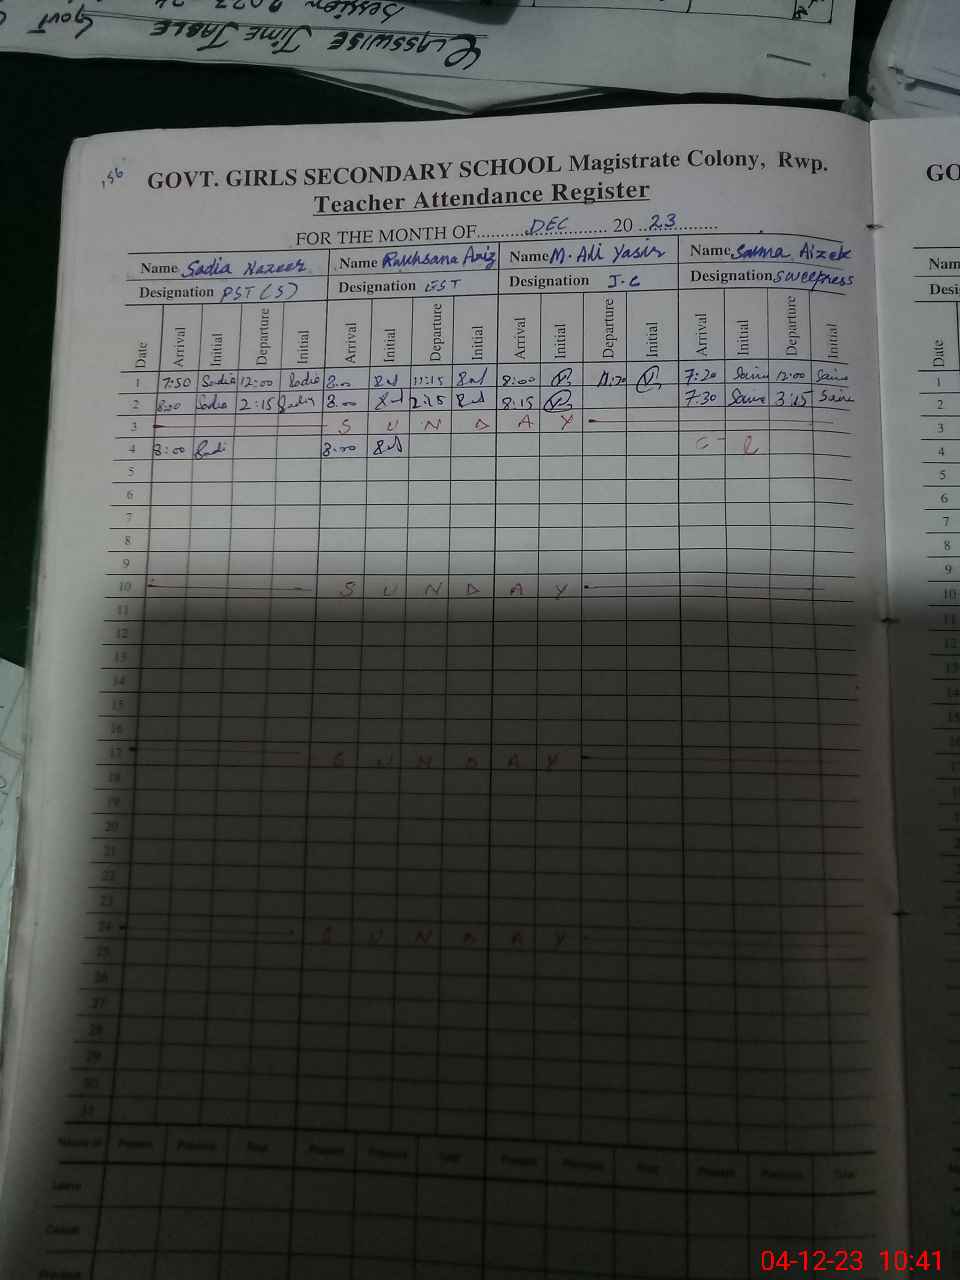 CLASSWISE TIME TABLE GOVT
GOVT. GIRLS SECONDARY SCHOOL Magistrate Colony, Rwp.
Teacher Attendance Register
FOR THE MONTH OF DEC 20 23
Name Sadia Nazeer Name Rukhsana Aziz Name M. Ali Yasir Name Saima
Designation PST (S) Designation EST Designation J.C Designation Sweepress
Date Arrival Initial Departure Initial Arrival Initial Departure Initial Arrival Initial Departure Initial Arrival Initial Departure Initial
1 7:50 Sadia 12:00 Sadia 8:00 11:15 8:00 7:20 12:00
2 8:00 Sadia 2:15 Sadia 8:00 2:15 8:15 7:30 3:15
3 S U N D A Y
4 8:00 8:00 C L
5
6
7
8
9
10 S U N D A Y
11
12
13
14
15
16
17 S U N D A Y
18
19
20
21
22
23
24 S U N D A Y
25
26
27
28
29
30
31
Present Previous Total Present Previous Total Present Previous Total Present Previous Total
Leave
Casual
GO
Nam
Desi
Date
1
2
3
4
5
6
7
8
9
10
11
12
13
14
04-12-23 10:41